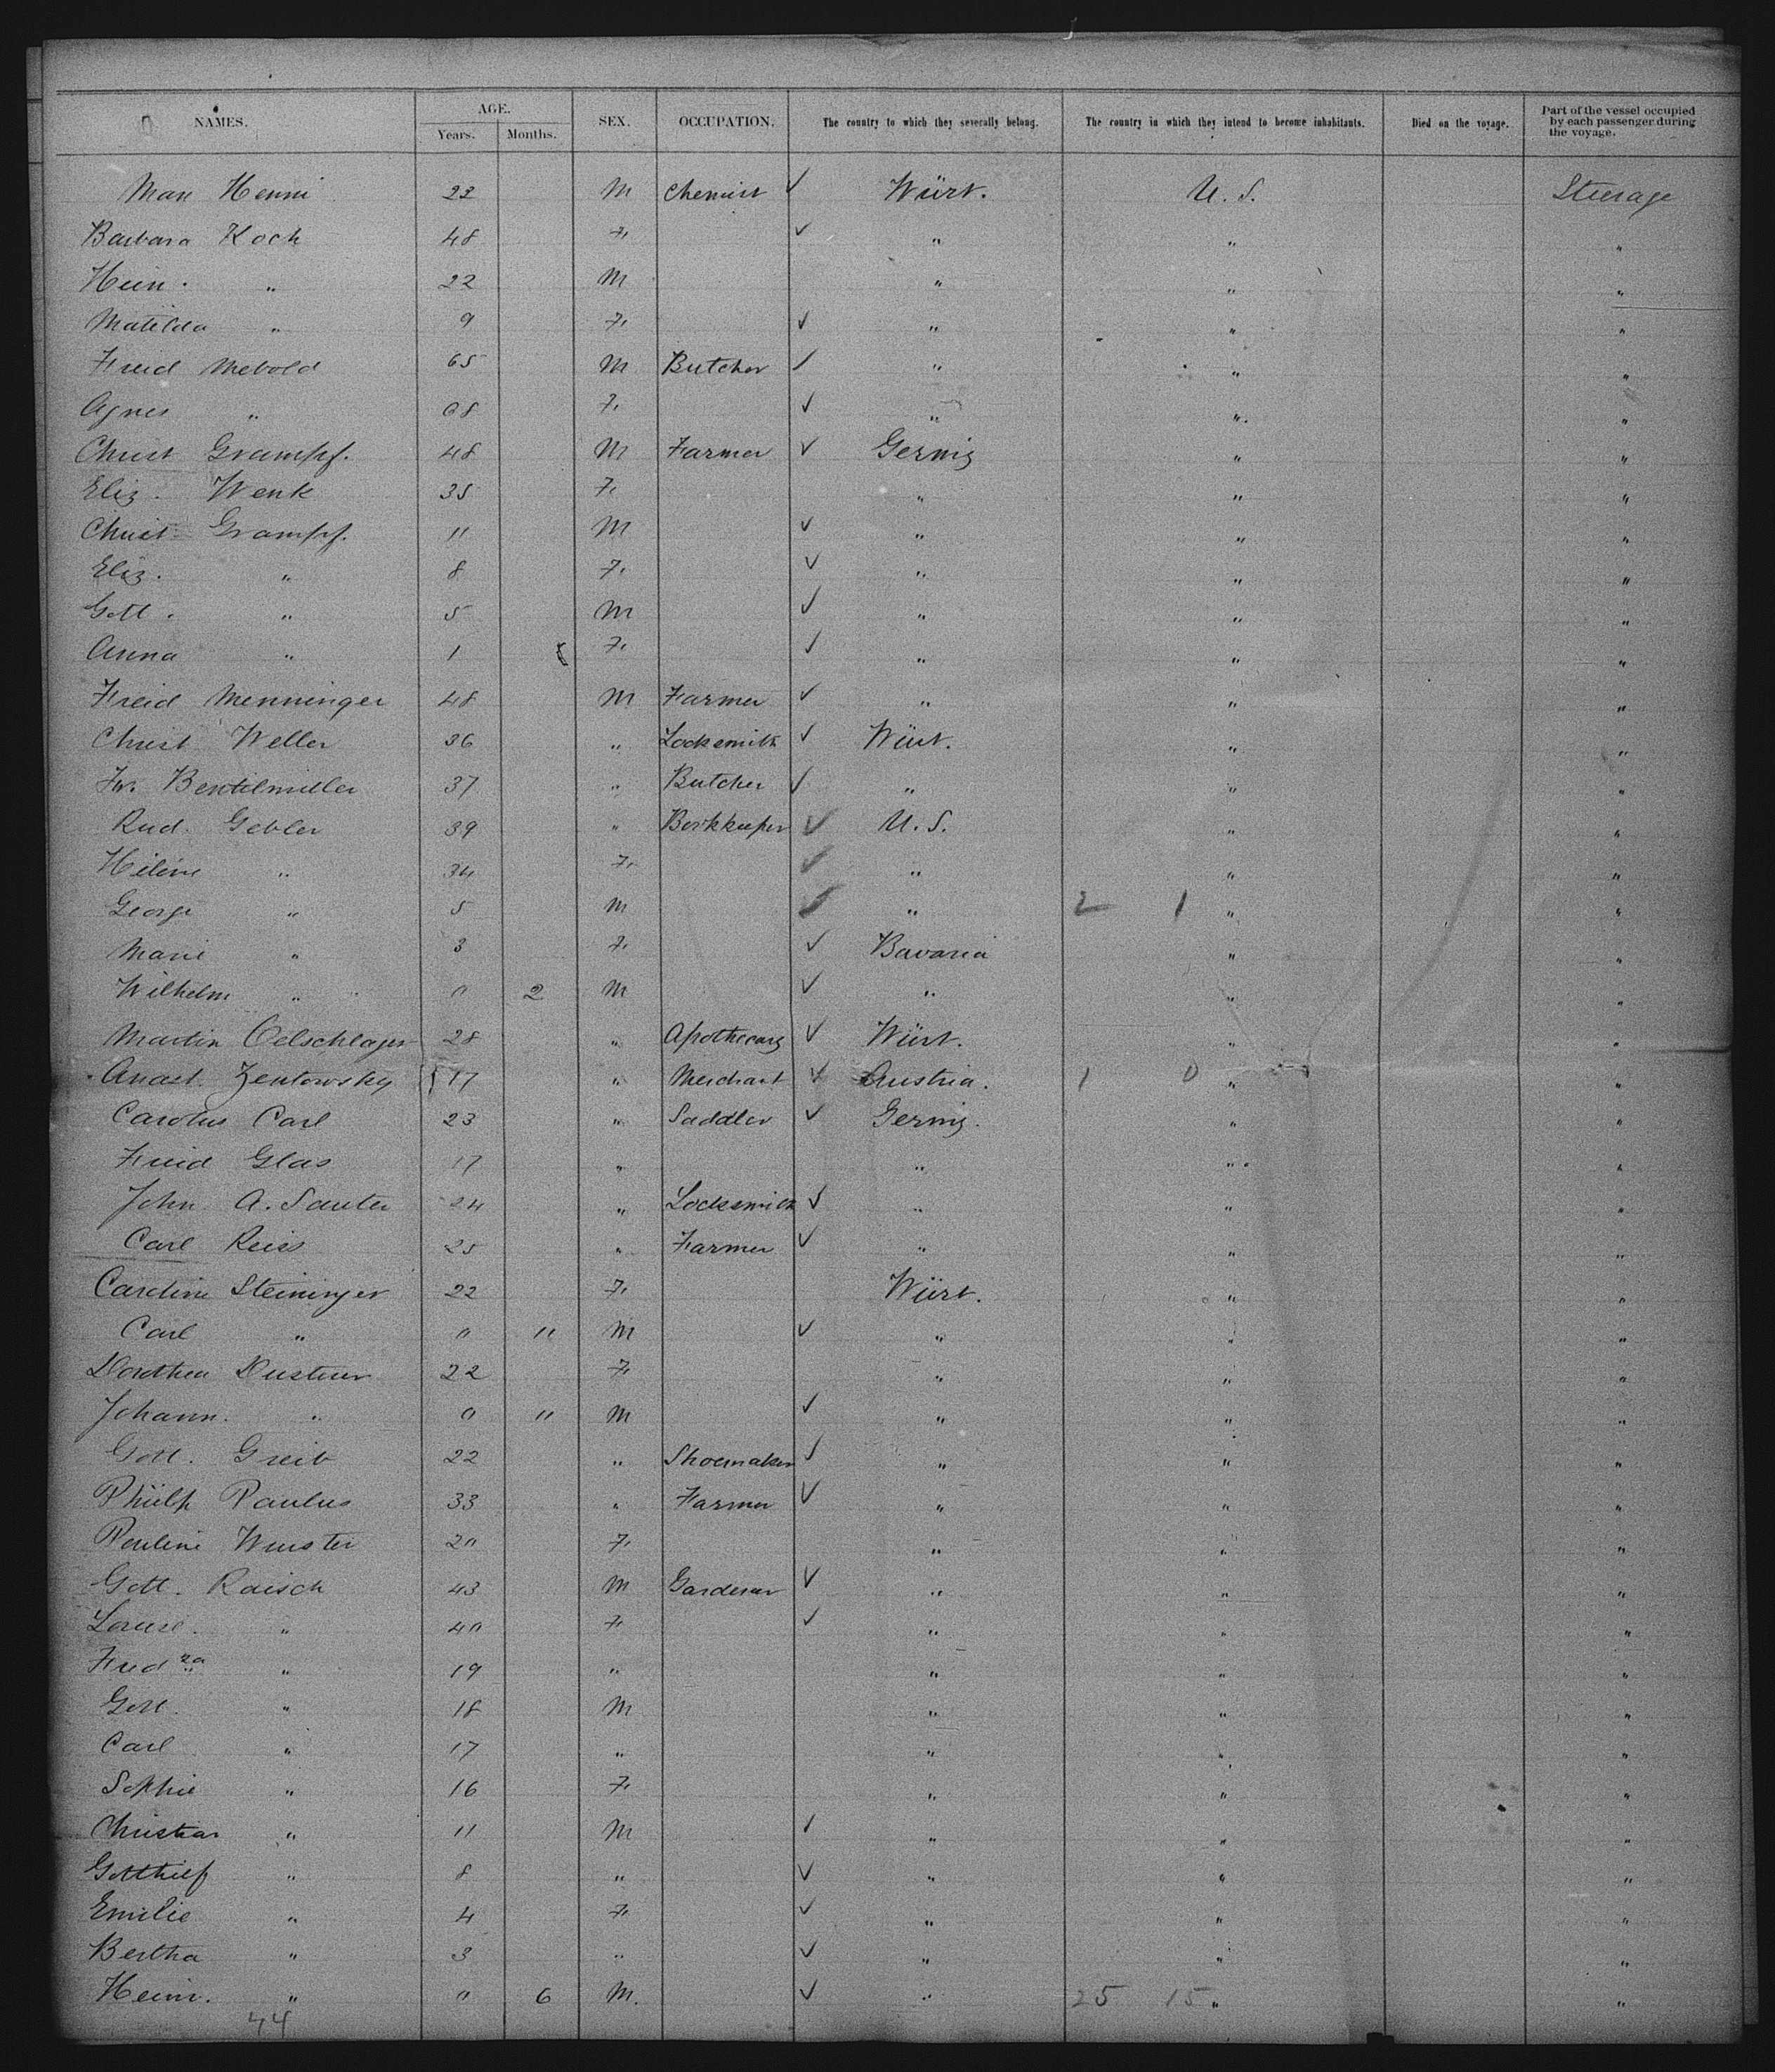 NAMES. AGE. Years. Months. SEX. OCCUPATION. The country to which they severally belong. The country in which they intend to become inhabitants. Died on the voyage. Part of the vessel occupied by each passenger during the voyage.
Max Henni 22 M Chemist ✓ Würt. U. S. Steerage
Barbara Koch 48 F. ✓ " " "
Hein. " 22 M " " "
Matilda " 9 F. ✓ " " "
Fried Mebold 65 M Butcher ✓ " " "
Agnes " 68 F. ✓ " " "
Christ Grampf. 48 M Farmer ✓ Germy " "
Eliz. Wenk 35 F. " " "
Christ Grampf. 11 M ✓ " " "
Eliz. " 8 F. ✓ " " "
Gottl. " 5 M ✓ " " "
Anna " 1 F. ✓ " " "
Fried Menninger 48 M Farmer ✓ " " "
Christ Weller 36 " Locksmith ✓ Würt. " "
Fr. 37 " Butcher ✓ " " "
Rud. Gebler 39 " Bookkeeper ✓ U. S. " "
Helene " 34 F. ✓ " " "
George " 5 M ✓ " 2 1 " "
Marie " 3 F. ✓ Bavaria " "
Wilhelm " 0 2 M ✓ " " "
Martin Oelschlager 28 " Apothecary ✓ Würt. " "
Anast. Zentowsky 17 " Merchant ✓ Austria. 1 0 " "
Carolus Carl 23 " Saddler ✓ Germy. " "
Fried Glas 17 " " " "
John A. Sauter 24 " Locksmith ✓ " " "
Carl Reiss 25 " Farmer ✓ " " "
Caroline Steininger 22 F. Würt. " "
Carl " 0 11 M ✓ " " "
Dorothea 22 F. " " "
Johann. " 0 11 M ✓ " " "
Gottl. Greib 22 " Shoemaker ✓ " " "
Philip Paulus 33 " Farmer ✓ " " "
Pauline Wurster 20 F. " " "
Gottl. Raisch 43 M Gardener ✓ " " "
Louise. " 40 F. ✓ " " "
Fried ka " 19 " " " "
Gottl. " 18 M " " "
Carl " 17 " " " "
Sophie " 16 F. " " "
Christian " 11 M ✓ " " "
Gotthilf " 8 " ✓ " " "
Emilie " 4 F. ✓ " " "
Bertha " 3 " ✓ " " "
Heinr. " 0 6 M. ✓ " 25 15 " "
44